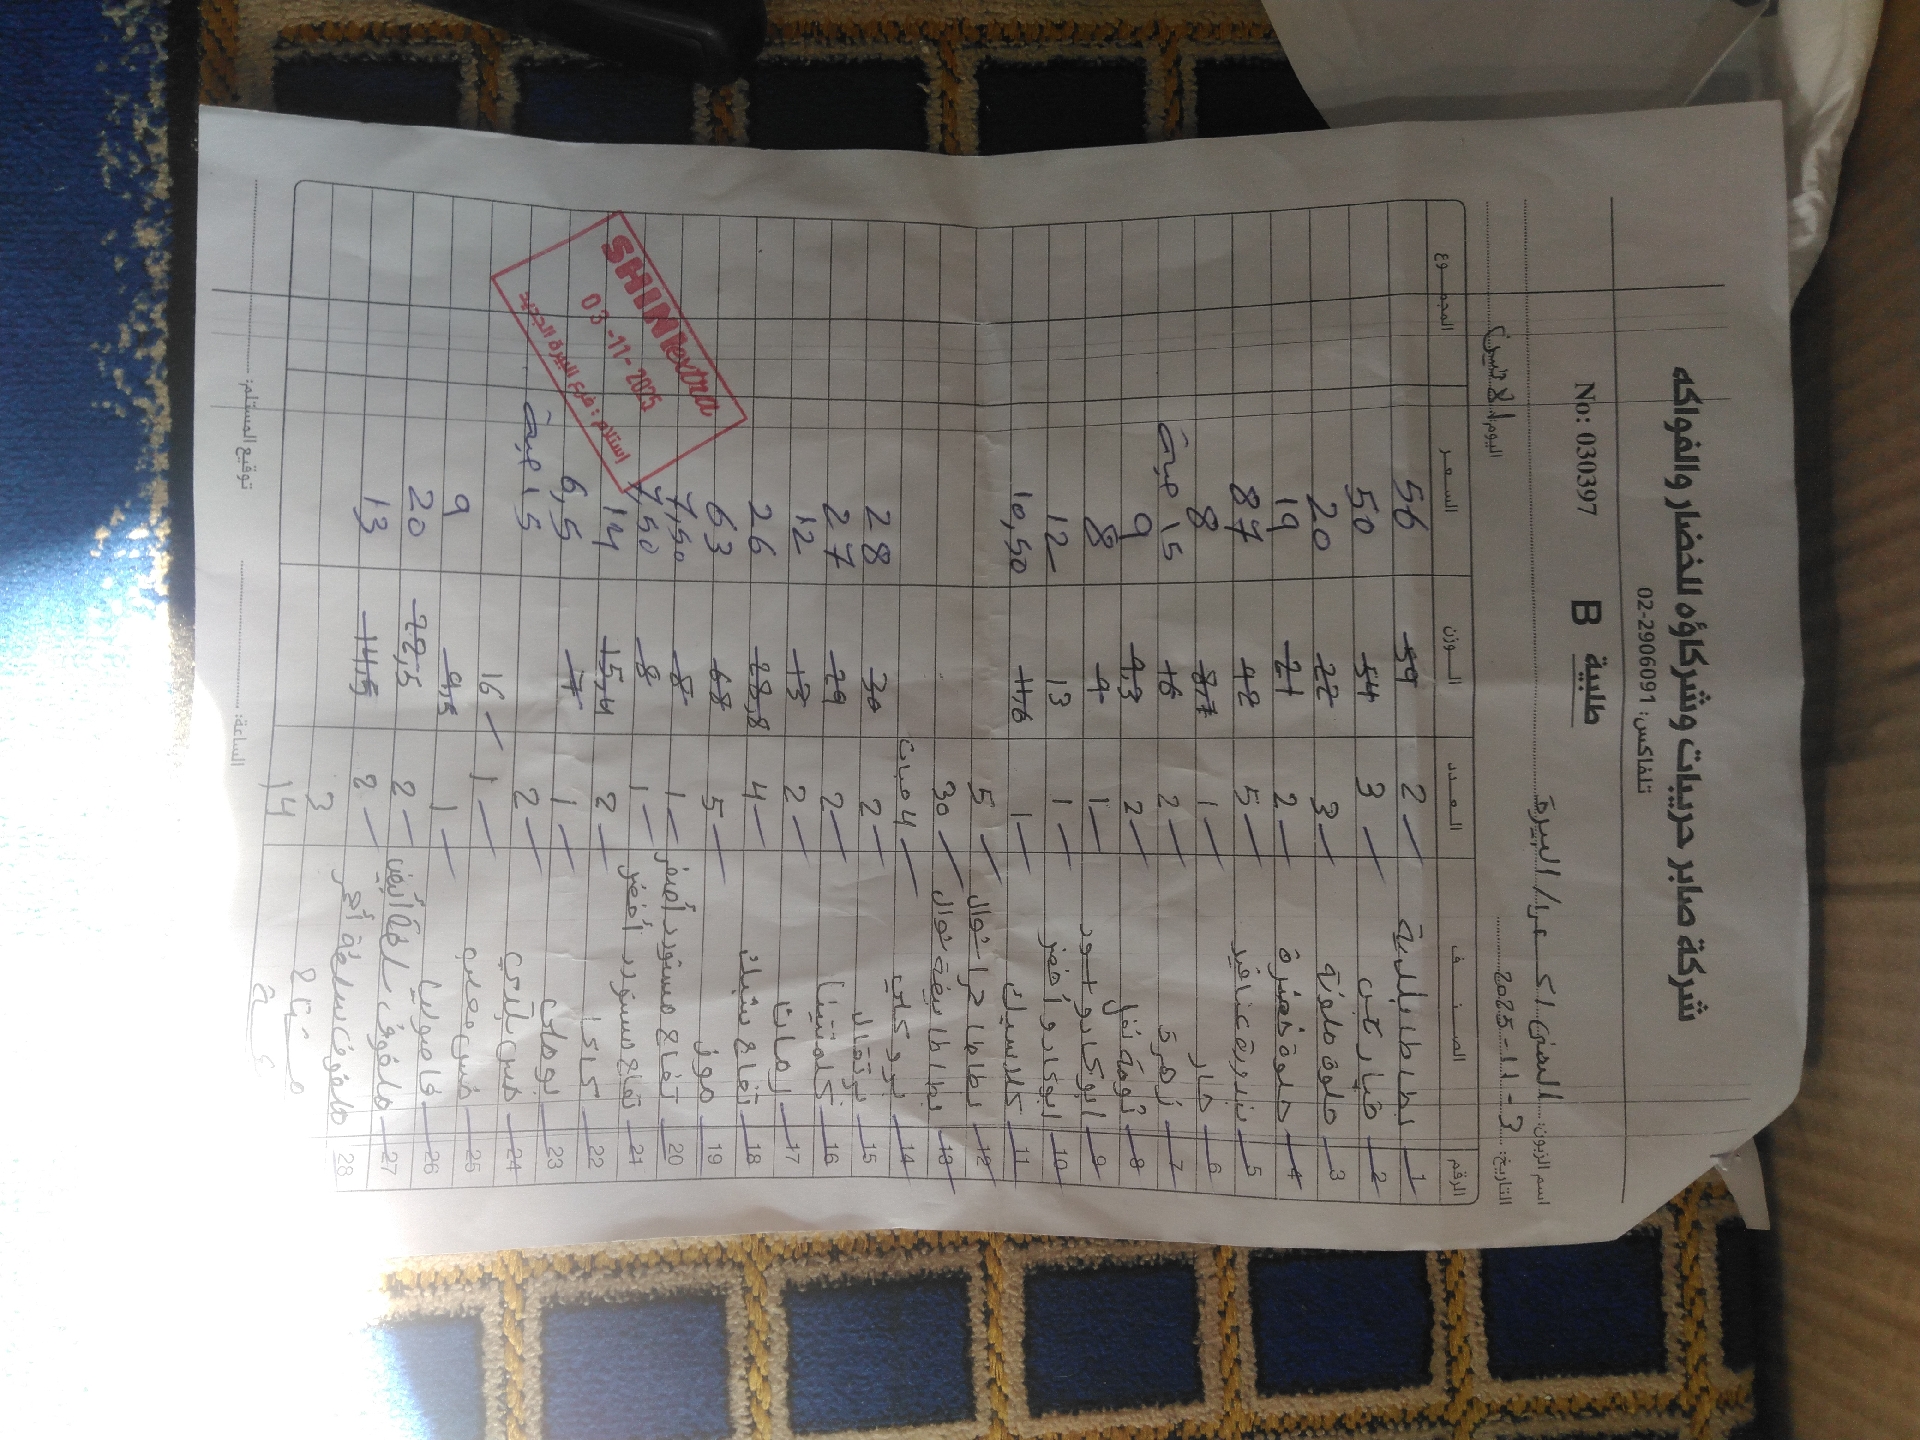 شركة صابر حريبات وشركاؤه للخضار والفواكه
تلفاكس: 02-2906091
No: 030397 طلبية B
اسم الزبون: الشني اكسترا / البيرة
التاريخ: 3-11-2025 اليوم: الاثنين
الرقم الصنف العدد الوزن السعر المجموع
1 بطاطا بلدية 2 59 56
2 خيار كبس 3 54 50
3 حلوة ملونة 3 22 20
4 حلوة خضرة 2 21 19
5 بندورة عناقيد 5 42 87
6 حار 1 8,7 8
7 زهرة 2 16 15 حبة
8 ثومة نفل 2 9,3 9
9 ابوكادو اسود 1 9 8
10 ابوكادو أخضر 1 13 12
11 كلاسيك 1 11,6 10,50
12 بطاطا حرا شوال 5
13 بطاطا ابيض شوال 30
14 بروكلي 4 حبات
15 برتقال 2 30 28
16 كلمنتينا 2 29 27
17 رمان 2 13 12
18 تفاح سبتك 4 28,8 26
19 موز 5 68 63
20 تفاح مستورد أصفر 1 8 7,50
21 تفاح مستورد أخضر 1 8 7,50
22 كاكا 2 15,4 14
23 بوملي 1 7 6,5
24 خس بلدي 2 15 حبة
25 خس معلب 1 16
26 فاصوليا 1 9,5 9
27 ملفوف سلطة أبيض 2 22,5 20
28 ملفوف سلطة أحمر 2 14,5 13
3
14
SHINI extra
03-11-2025
استلام: فرع البيرة الجديد
الساعة: توقيع المستلم: